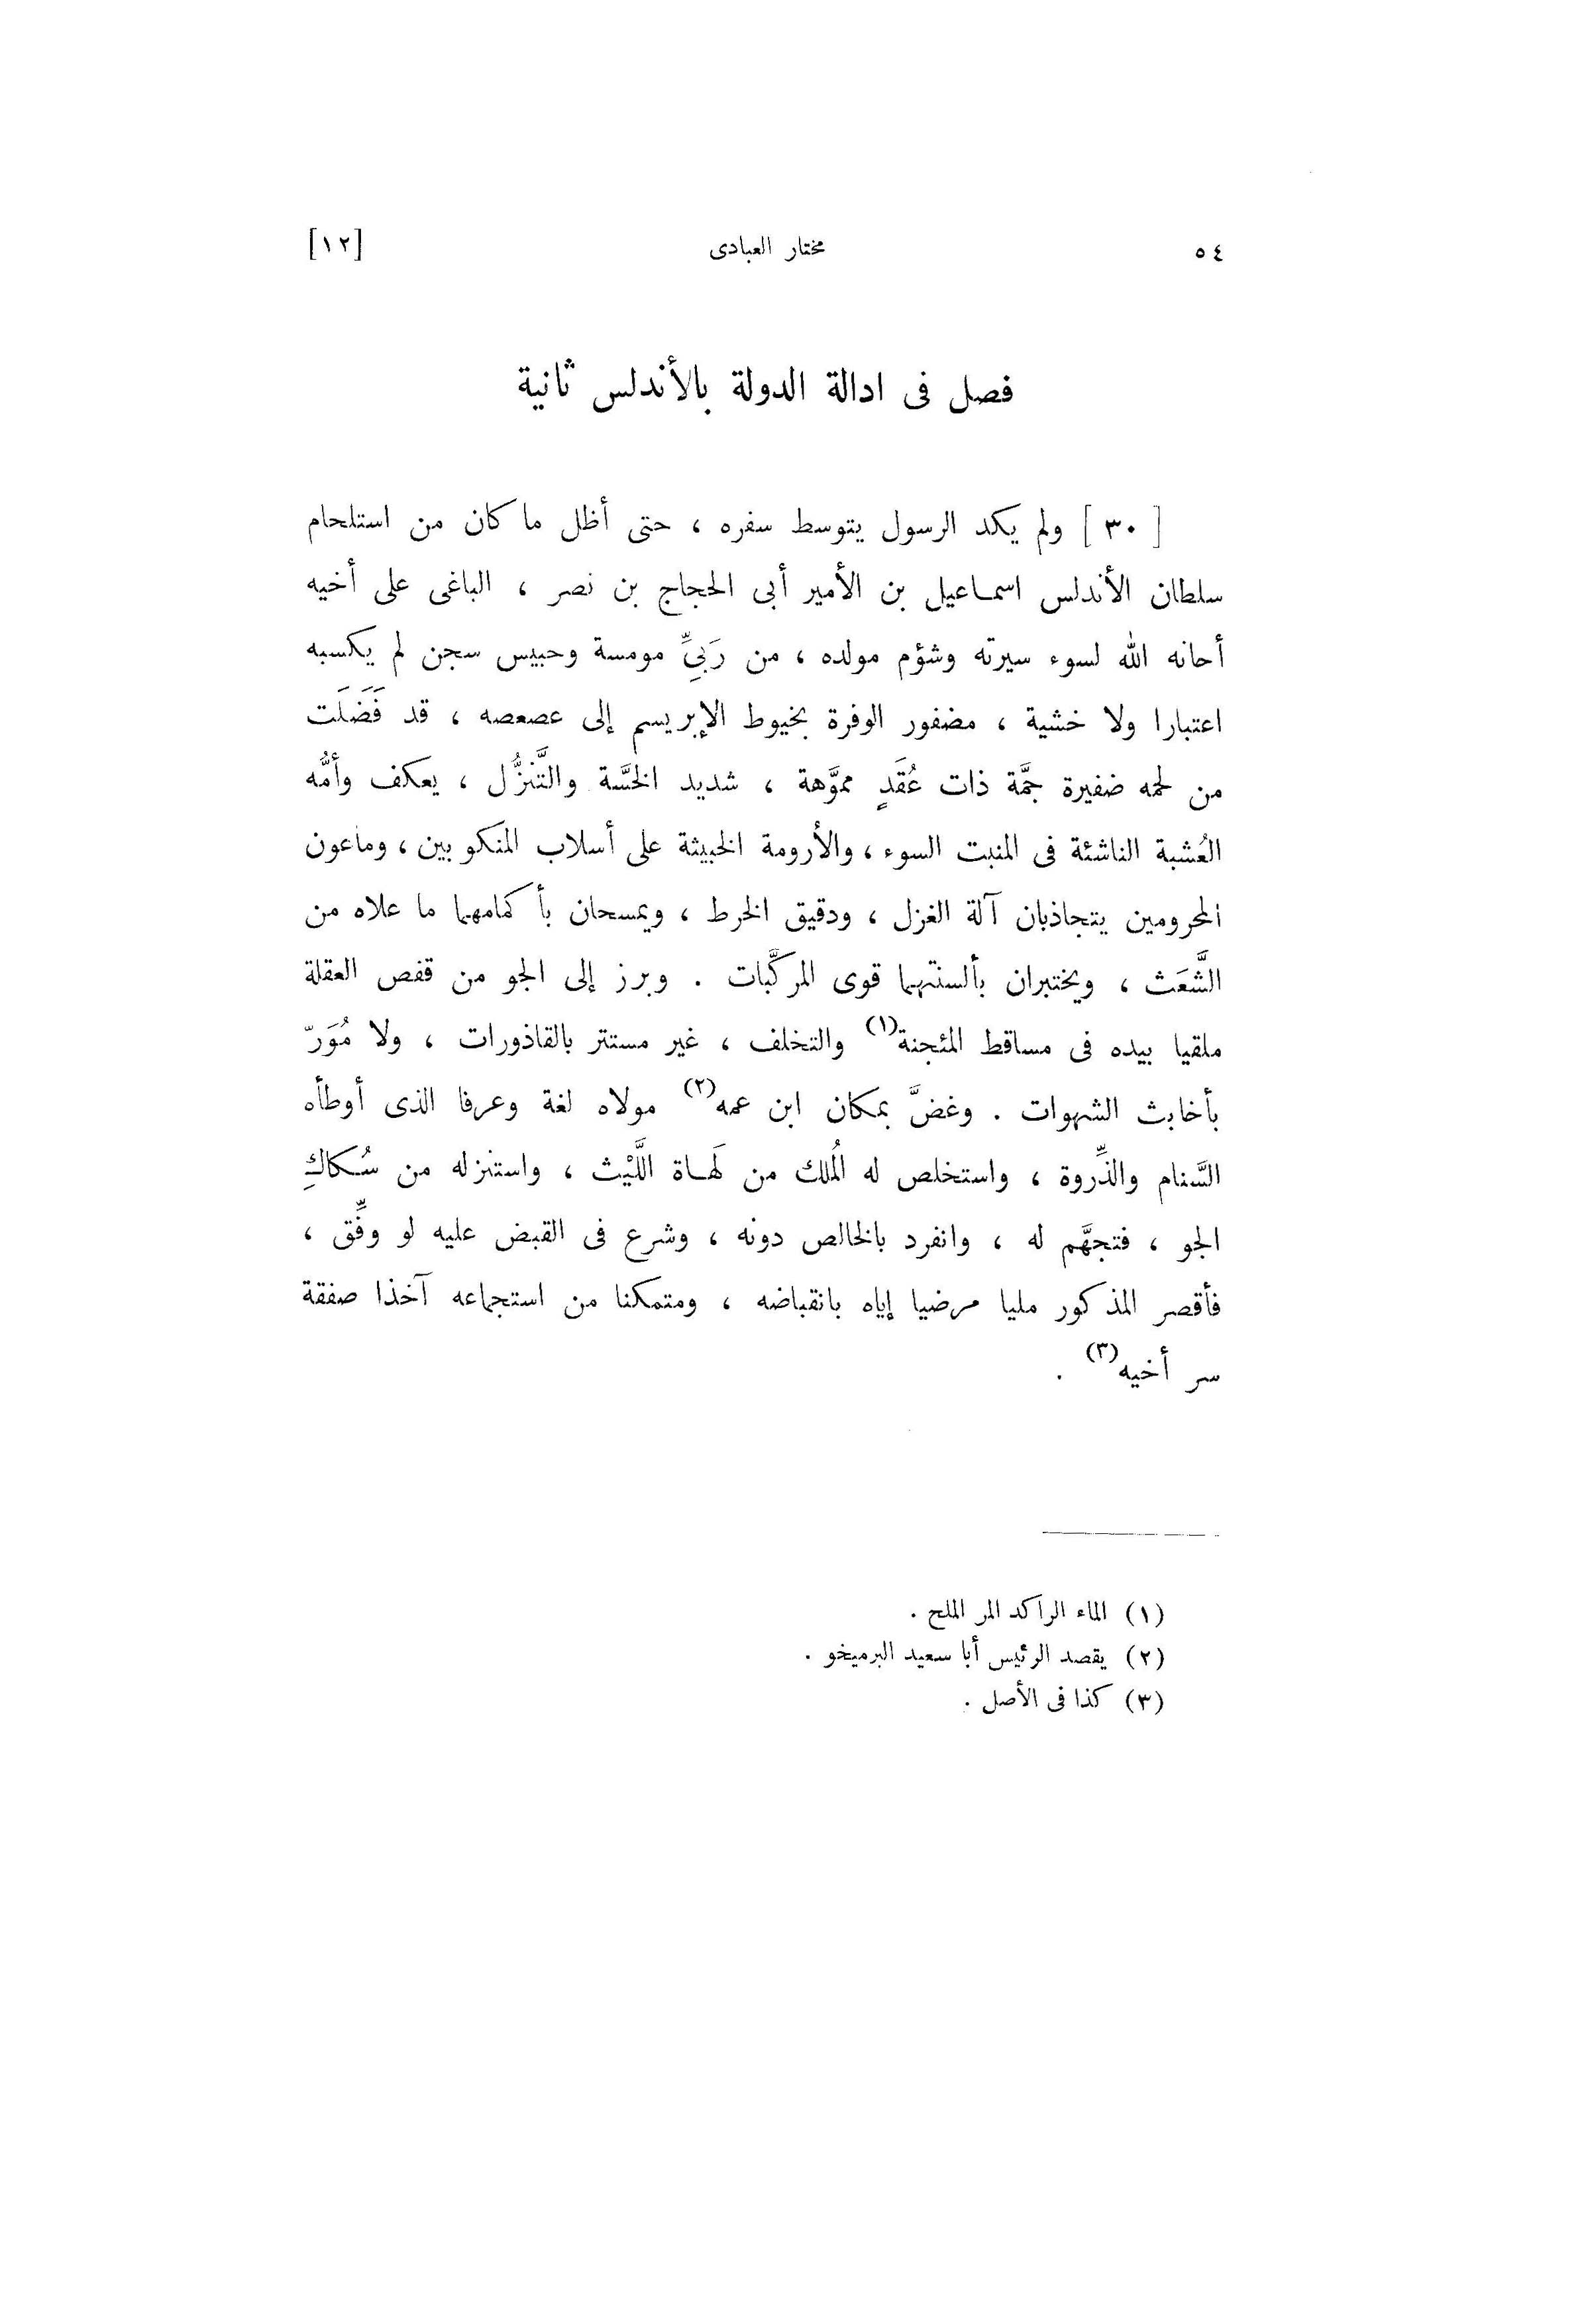 ٥٤ مختار العبادى [١٢]
فصل فى ادالة الدولة بالأندلس ثانية
[ ٣٠ ] ولم يكد الرسول يتوسط سفره ، حتى أظل ما كان من استلحام
سلطان الأندلس اسماعيل بن الأمير أبى الحجاج بن نصر ، الباغى على أخيه
أحانه الله لسوء سيرته وشؤم مولده ، من رَبىِّ مومسة وحبيس سجن لم يكسبه
اعتبارا ولا خشية ، مضفور الوفرة بخيوط الإبريسم إلى عصعصه ، قد فَضَلَت
من لحمه ضفيرة جمَّة ذات عُقَدٍ مموَّهة ، شديد الخسَّة والتَّنزُّل ، يعكف وأمُّه
العُشبة الناشئة فى المنبت السوء ، والأرومة الخبيثة على أسلاب المنكوبين ، وماعون
المحرومين يتجاذبان آلة الغزل ، ودقيق الخرط ، ويمسحان بأكمامهما ما علاه من
الشَّعَث ، ويختبران بألسنتهما قوى المركَّبات . وبرز إلى الجو من قفص العقلة
ملقيا بيده فى مساقط المئجنة(١) والتخلف ، غير مستتر بالقاذورات ، ولا مُوَرّ
بأخابث الشهوات . وغضَّ بمكان ابن عمه(٢) مولاه لغة وعرفا الذى أوطأه
السَّنام والذِّروة ، واستخلص له المُلك من لَهاة اللَّيْث ، واستنزله من سُكاكِ
الجو ، فتجهَّم له ، وانفرد بالخالص دونه ، وشرع فى القبض عليه لو وفِّق ،
فأقصر المذكور مليا مرضيا إياه بانقباضه ، ومتمكنا من استجماعه آخذا صفقة
سر أخيه(٣) .
(١) الماء الراكد المر الملح .
(٢) يقصد الرئيس أبا سعيد البرميخو .
(٣) كذا فى الأصل .